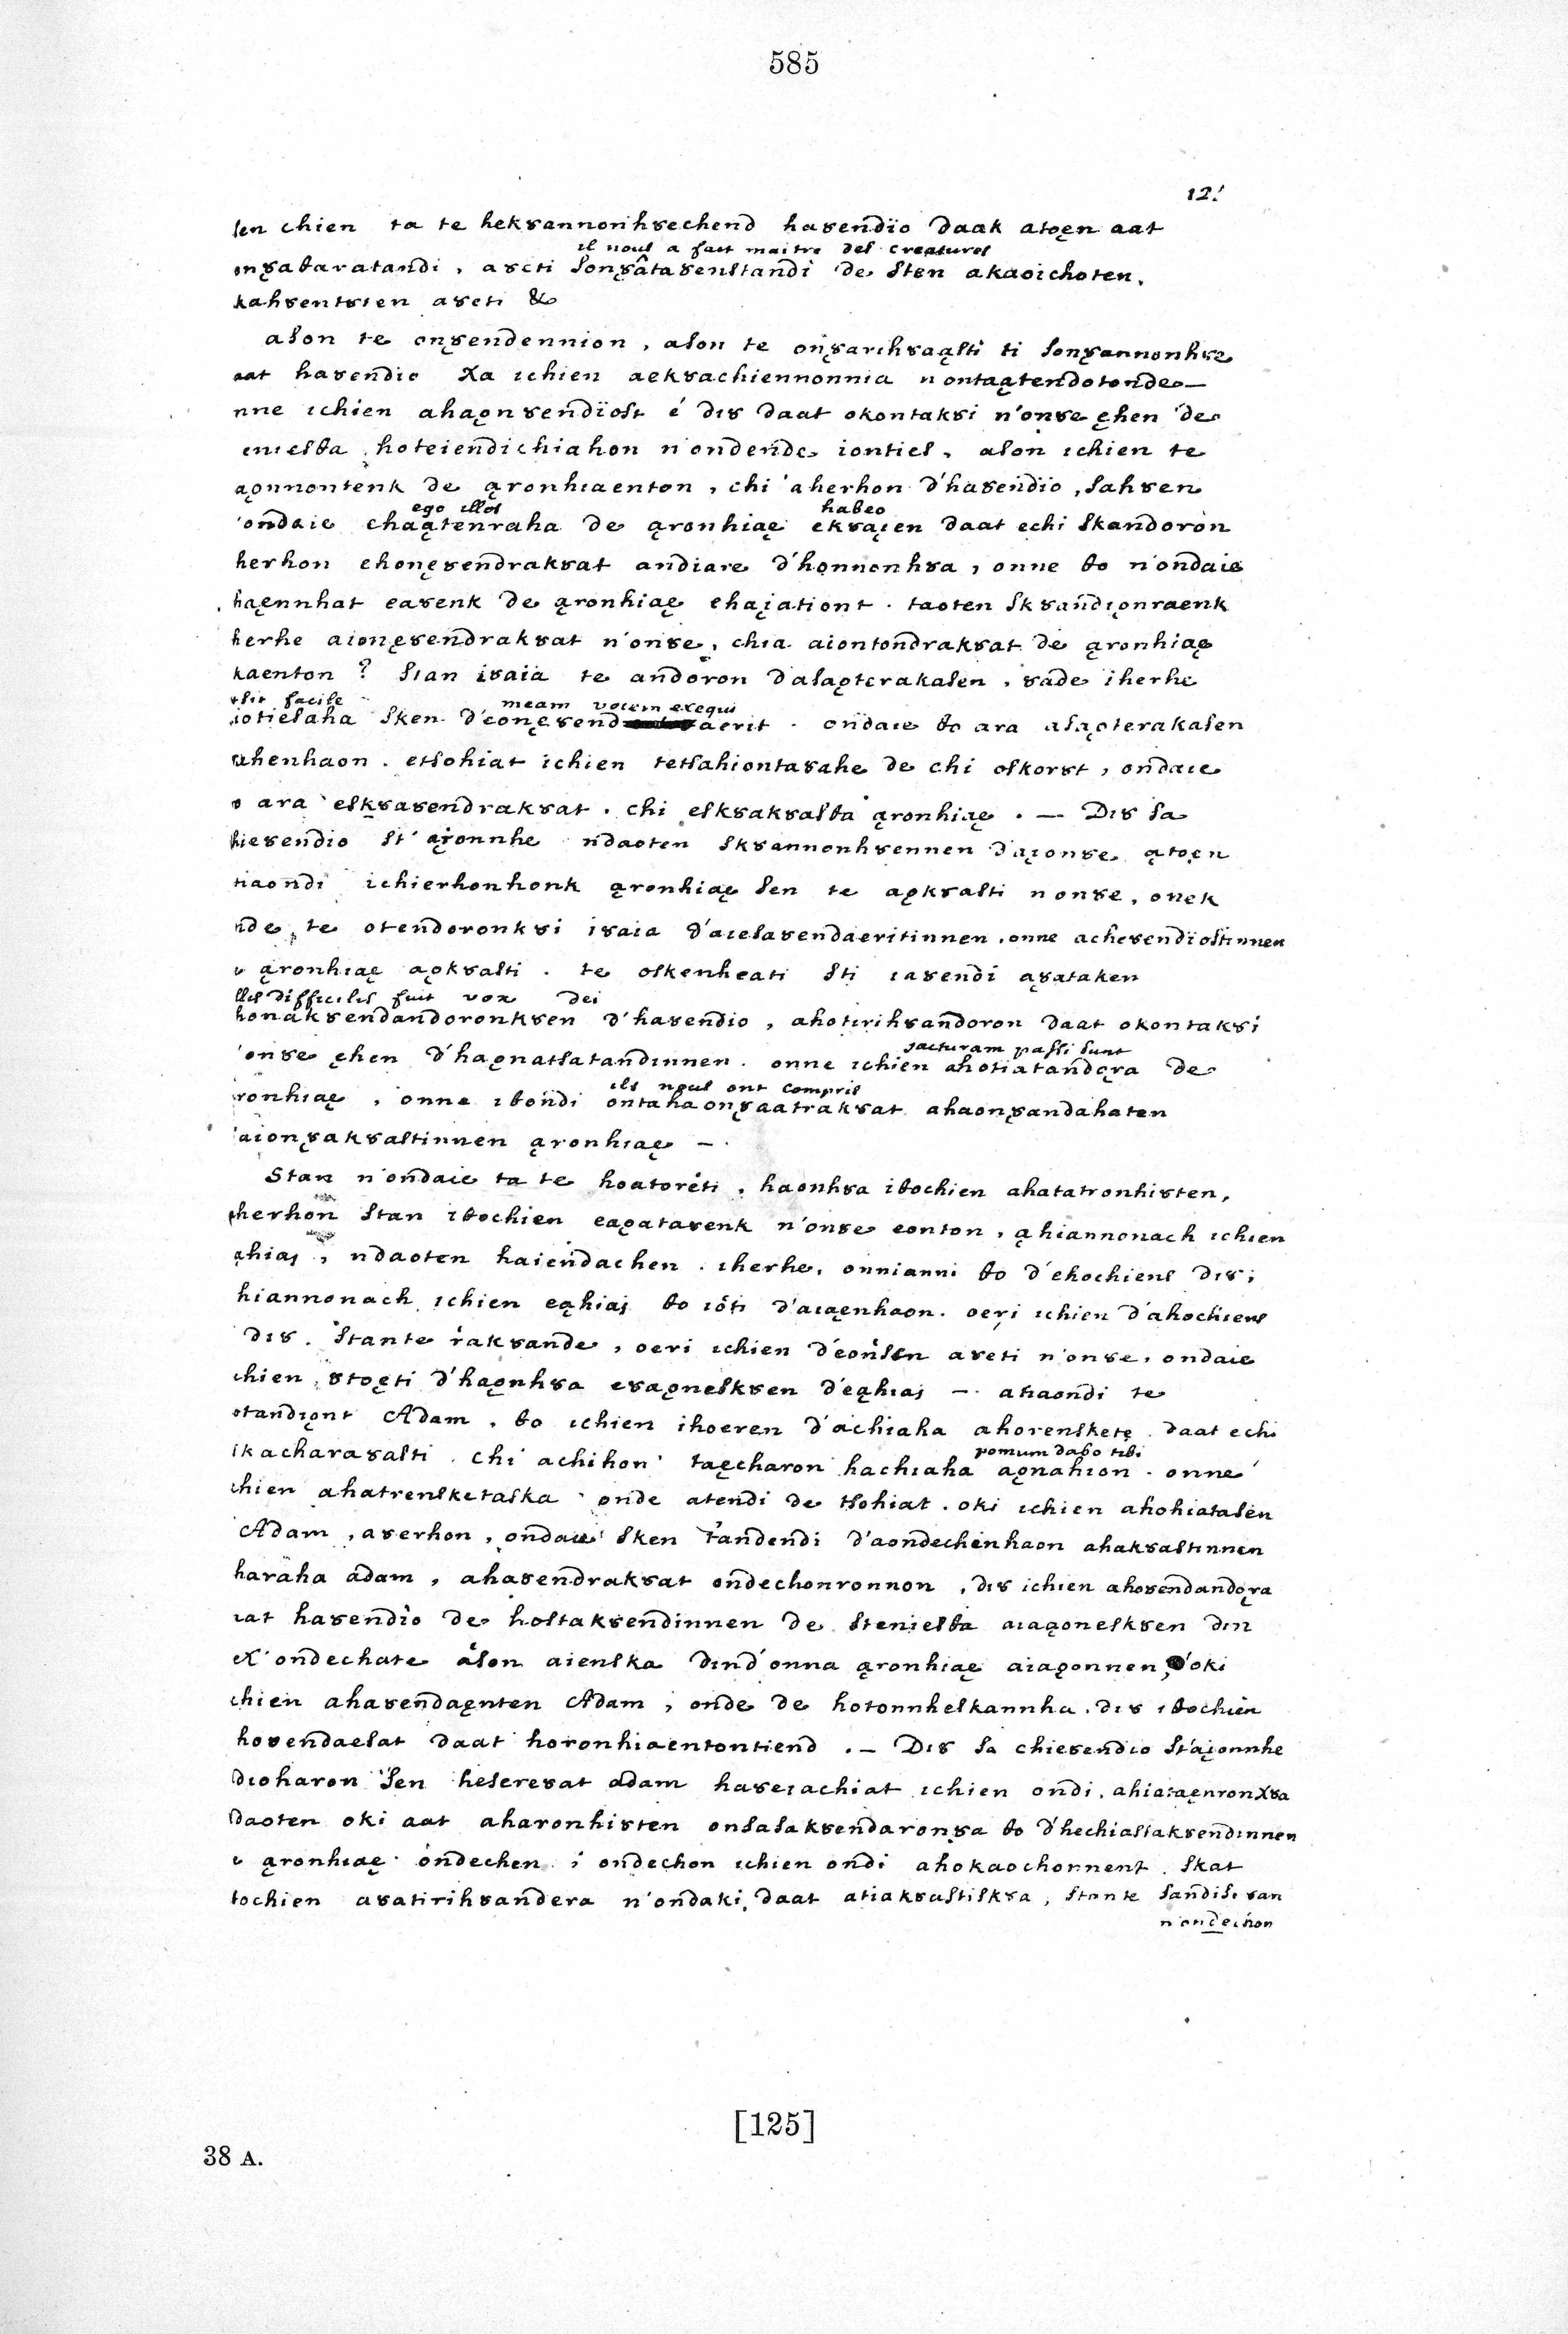 585
12!
sen chien ta te hekȣannonhȣechend haȣendïo daak atoęn aat
il nous a fait maitre des creatures
onȣ̨aθaratandi, aȣeti sonȣ̨âtaȣenstandi de stȣn akaoichoten.
kahȣentȣten aȣeti &
ason te onȣ̨endennion, ason te onȣ̨arihȣaąsti ti sonȣ̨annonhȣe
aat haȣendio χa ichien aekȣachiennonnia n ontaątendotonde —
nne ichien ahaǫnȣendïost é diȣ daat okontakȣi n'onȣe ęhen de
eniesθa hoteiendichiahon n'ondende ionties, ason ichien te
aǫnnontenk de ąronhiaenton, chi aherhon d'haȣendio, sahȣen
ego illos habeo
'ondaie chaątenraha de ąronhiaę ekȣaįen daat echi skandoron
herhon ehonęȣendrakȣat andiare d'hǫnnonhȣa, onne θo n'ondaie
haęnnhat eaȣenk de ąronhiaę ehaįationt. taoten skȣandįǫnraenk
herhe aionęȣendrakȣat n'onȣe, chia aiontondrakȣat de ąronhiaę
kaenton? stan iȣaia te andoron d'asaǫterakasen, ȣade iherhe
sit facile meam vocem exequi
iotiesaha sken d'eonęȣend aerit. ondaie θo ara asaǫterakasen
ahenhaon. etsohiat ichien tetsahiontaȣahe de chi oskorȣt, ondaie
o ara eskȣaȣendrakȣat. chi eskȣakȣasθa ąronhiaę. — Diȣ sa
hieȣendio st' aįonnhe ndaoten skȣannonhȣennen d'aįonȣe ątoęn
tiaondi ichierhonhonk ąronhiaę sen te aǫkȣasti nonȣe, onek
nde te otendoronkȣi iȣaia d'aiesaȣendaeritinnen. onne acheȣendiostinnen
e ąronhiaę aǫkȣasti. te oskenheati sti iaȣendi aȣ̨ataken
illis difficilis fuit vox dei
honakȣendandoronkȣen d'haȣendio, ahotirihȣandoron daat okontakȣi
jacturam passi sunt
'onȣe ęhen d'haǫnatsatandinnen. onne ichien ahotiatandǫra de
ils nous ont compris
ronhiaę, onne iθondi ontahaonȣ̨aatrakȣat ahaonȣ̨andahaten
'aionȣ̨akȣastinnen ąronhiaę —.
Stan n'ondaie ta te hoatoreti, haonhȣa iθochien ahatatronhiȣten,
herhon stan iθochien eaǫataȣenk n'onȣe eonton, ąhiannonach ichien
ąhiaj, ndaoten haiendachen. iherhe, onnianni θo d'ehochiens diȣ;
hiannonach ichien eąhiaj θo ioti d'aiaęnhaon. oeri ichien d'ahochiens
diȣ. stante rakȣande, oeri ichien d'eonsen aȣeti n'onȣe, ondaie
chien ȣtoęti d'haǫnhȣa eȣaǫneskȣen d'eąhiaj —. atiaondi te
otandįǫnt Adam. θo ichien ihoeren d'achiaha ahorenskętę daat echi
pomum dabo tibi
ikacharaȣasti. chi achihon' taęcharon hachiaha aǫnahion. onne
chien ahatrensketaska onde atendi de tsohiat. oki ichien ahohiatasen
Adam, aȣerhon, ondaie sken tandendi d'aondechenhaon ahakȣastinnen
haraha adam, ahaȣendrakȣat ondechonronnon, diȣ ichien ahoȣendandǫra
iat haȣendio de hostakȣendinnen de steniesθa aiaąoneskȣen din
χ'ondechate ason aienska dind'onna ąronhiaę aiaǫonnen, oki
chien ahaȣendaęnten Adam, onde de hotonnheskannha. diȣ iθochien
hoȣendaesat daat horonhiaentontiend. — Diȣ sa chieȣendio st'aįonnhe
dioharon sen hesereȣat adam haȣeiachiat ichien ondi. ahiataęnronχȣa
daoten oki aat aharonhiȣten onsasakȣendaronȣ̨a θo d'hechiastakȣendinnen
e ąronhiaę ondechen; ondechon ichien ondi ahokaochonnent. skat
tochien aȣatirihȣandera n'ondaki, daat atiakȣastiskȣa, stante sandisȣan
n'ondechon
[125]
38 A.